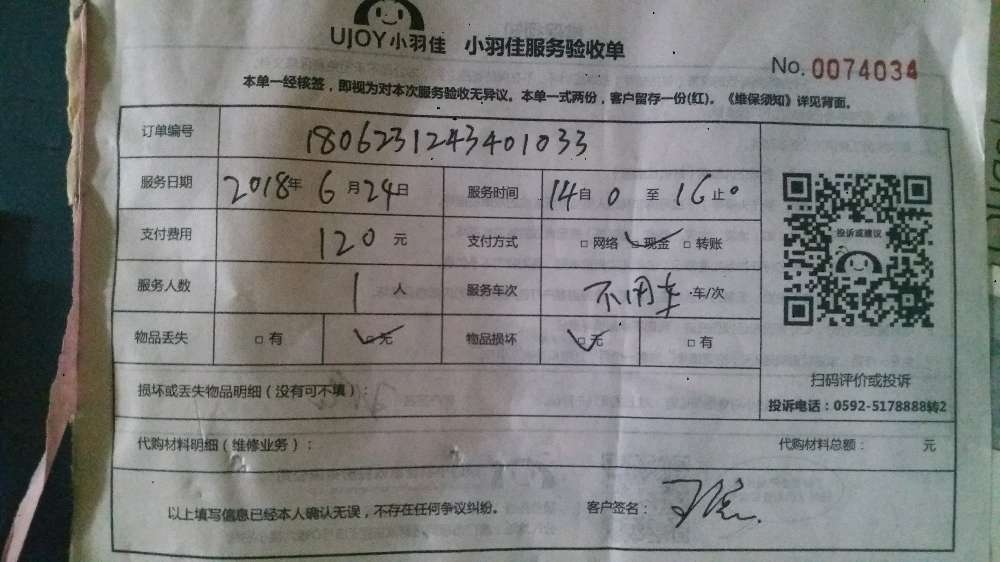 UJOY小羽佳 小羽佳服务验收单
No. 0074034
本单一经核签，即视为对本次服务验收无异议。本单一式两份，客户留存一份(红)。《维保须知》详见背面。
订单编号 1806231243401033
服务日期 2018年6月24日 服务时间 14自0至16止0
支付费用 120元 支付方式 □网络 □现金 □转账
投诉或建议
服务人数 1人 服务车次 不用车 车/次
物品丢失 □有 □无 物品损坏 □无 □有
扫码评价或投诉
损坏或丢失物品明细（没有可不填）：
投诉电话：0592-5178888转2
代购材料明细（维修业务）： 代购材料总额： 元
以上填写信息已经本人确认无误，不存在任何争议纠纷。 客户签名：